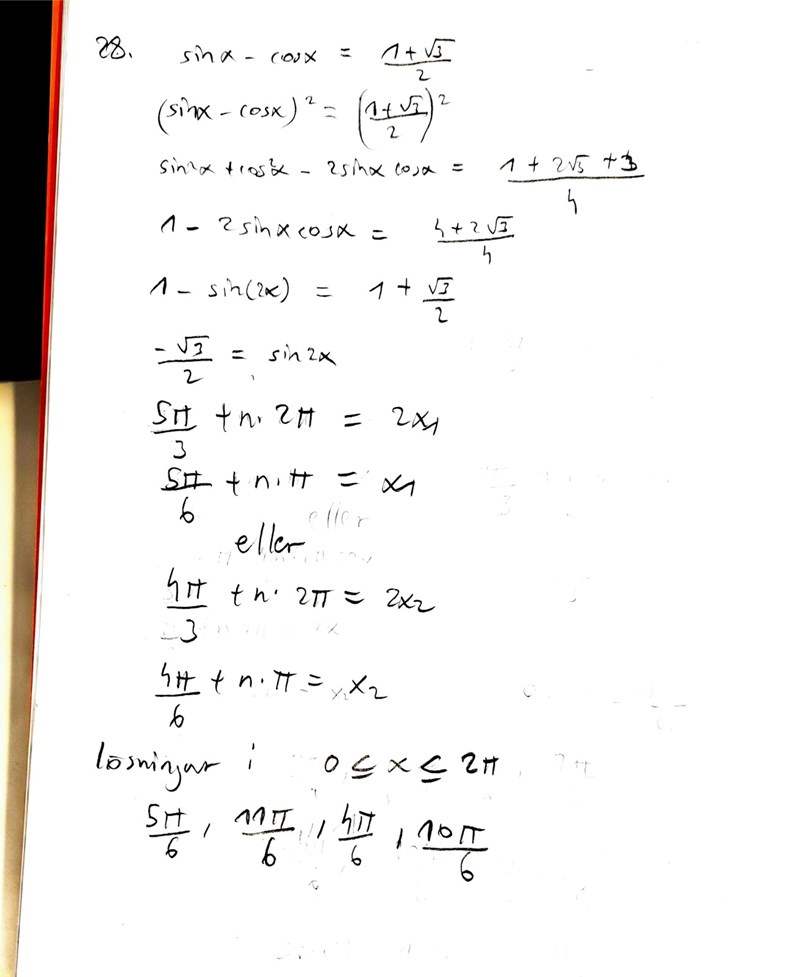 28. sinx - cosx = (1+√3)/2
(sinx - cosx)² = ((1+√3)/2)²
sin²x + cos²x - 2sinx cosx = (1 + 2√3 + 3)/4
1 - 2sinxcosx = (4+2√3)/4
1 - sin(2x) = 1 + √3/2
-√3/2 = sin2x
5π/3 + n·2π = 2x₁
5π/6 + n·π = x₁
eller
4π/3 + n·2π = 2x₂
4π/6 + n·π = x₂
lösningar i 0 ≤ x ≤ 2π
5π/6, 11π/6, 4π/6, 10π/6